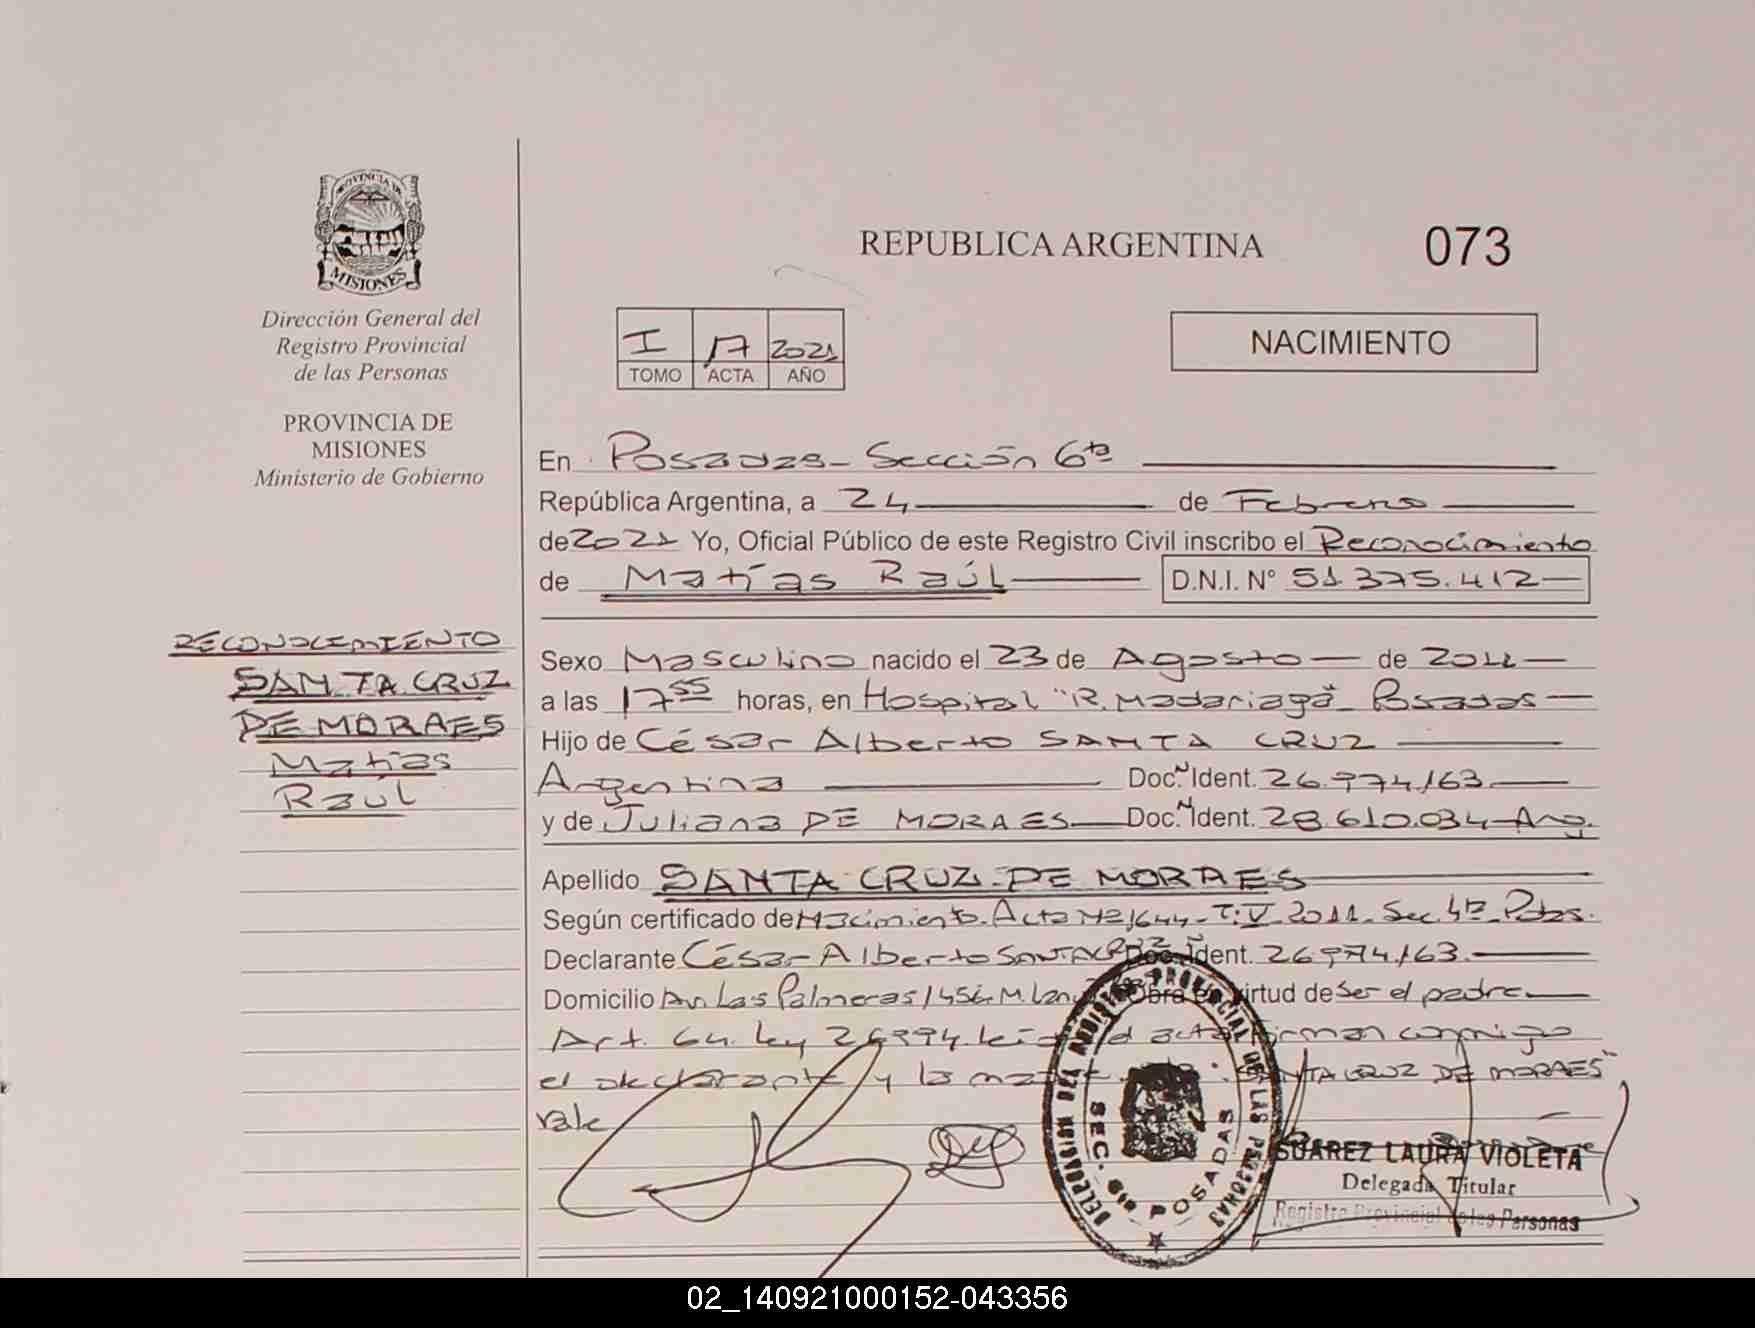 PROVINCIA DE
MISIONES
Dirección General del
Registro Provincial
de las Personas
PROVINCIA DE
MISIONES
Ministerio de Gobierno
RECONOCIMIENTO
SANTA CRUZ
DE MORAES
Matías
Raúl
REPUBLICA ARGENTINA
073
I 17 2021
TOMO ACTA AÑO
NACIMIENTO
En Posadas - Sección 6ta
República Argentina, a 24 de Febrero
de 2021 Yo, Oficial Público de este Registro Civil inscribo el Reconocimiento
de Matías Raúl D.N.I. N° 51.375.412
Sexo Masculino nacido el 23 de Agosto de 2011
a las 17 55 horas, en Hospital "R. Madariaga" Posadas
Hijo de César Alberto SANTA CRUZ
Argentina Doc. Ident. 26.974.163
y de Juliana DE MORAES Doc. Ident. 28.610.034 Arg.
Apellido SANTA CRUZ DE MORAES
Según certificado de Nacimiento. Acta Nº 1644 - T: V - 2011 - Sec. 4ta Pdas.
Declarante César Alberto SANTA CRUZ Doc. Ident. 26974163
Domicilio Av. Las Palmeras 1456 M. Obra en virtud de Ser el padre
Art. 64. Ley 26994. el acta Firman conmigo
el declarante y la SANTA CRUZ DE MORAES"
vale
DELEGACION DEL REGISTRO PROVINCIAL DE LAS PERSONAS
SEC. 6ta POSADAS
SUAREZ LAURA VIOLETA
Delegada Titular
Registro Provincial de las Personas
02_140921000152-043356